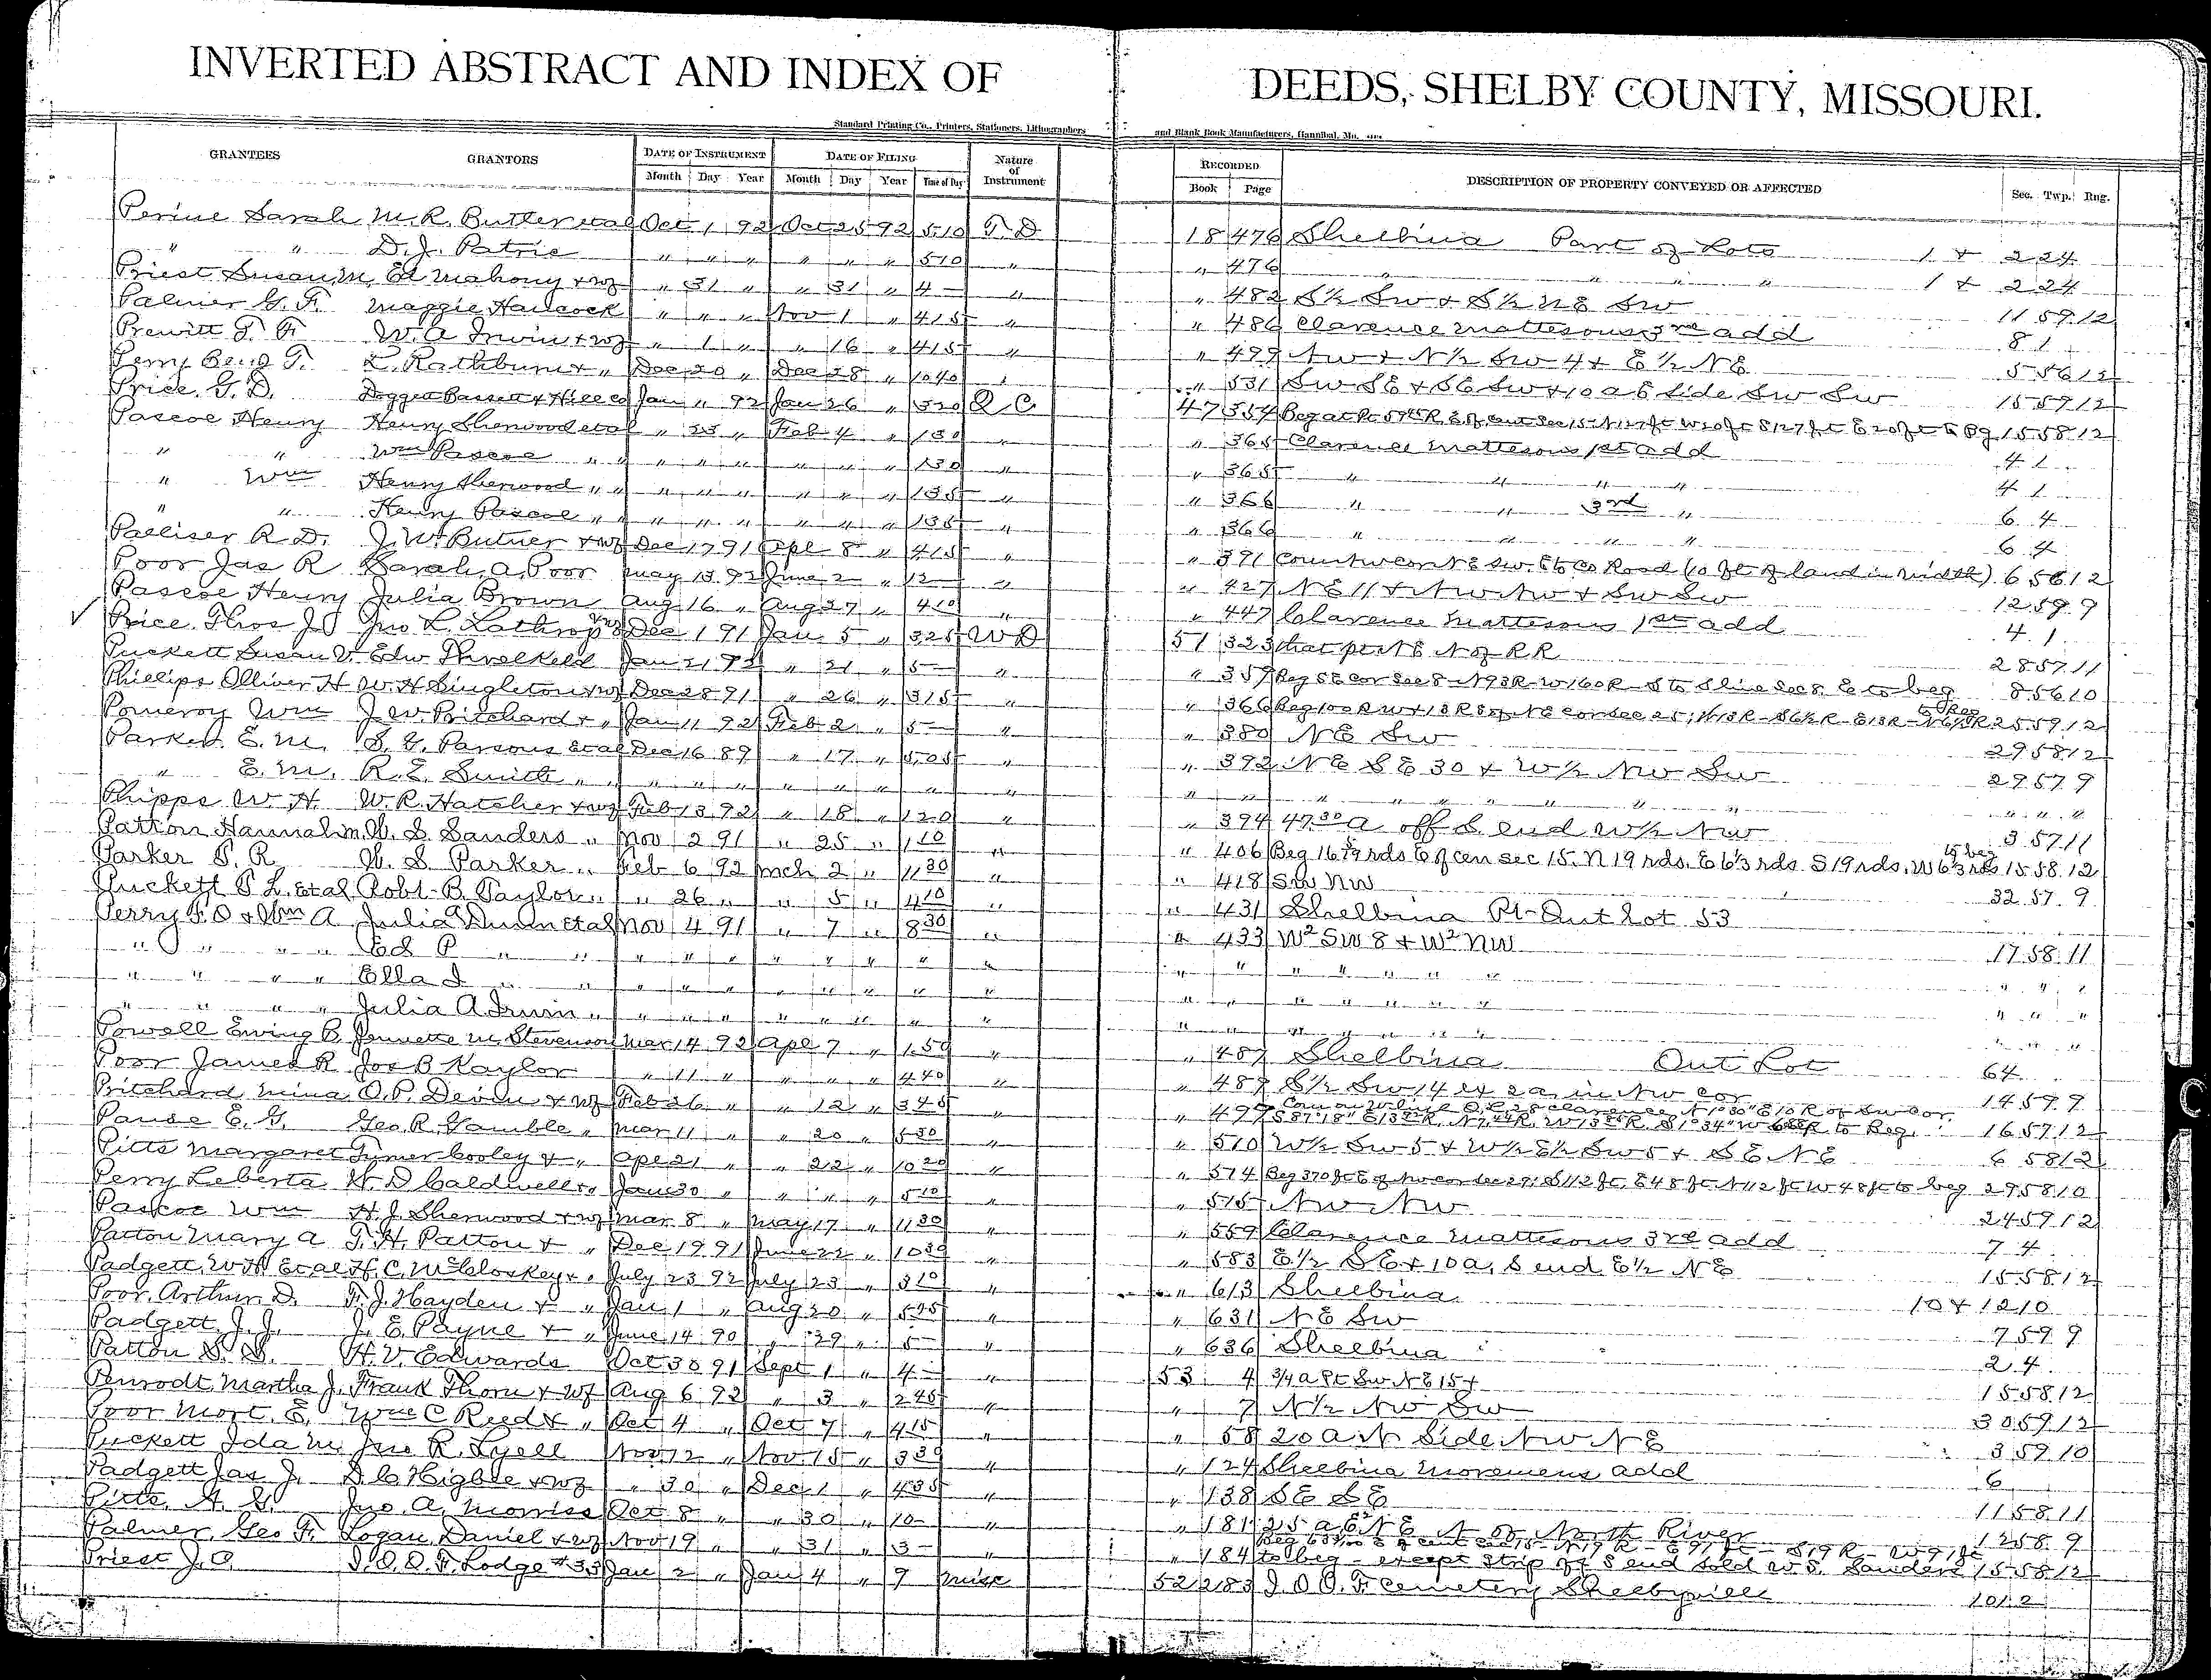 INVERTED ABSTRACT AND INDEX OF DEEDS, SHELBY COUNTY, MISSOURI.
Standard Printing Co., Printers, Stationers, Lithographers and Blank Book Manufacturers, Hannibal, Mo.
GRANTEES GRANTORS DATE OF INSTRUMENT DATE OF FILING Nature of Instrument RECORDED DESCRIPTION OF PROPERTY CONVEYED OR AFFECTED Sec. Twp. Rng.
Month Day Year Month Day Year Time of Day Book Page
Perine Sarah M. R. Butler etal Oct 1 92 Oct 25 92 510 T. D 18 476 Shelbina Part of Lots 1 + 2 24
" " D. J. Patrie " " " " " " 510 " " 476 " " " " 1 + 2 24
Priest Susan M. Ed Mahony + wf " 31 " " 31 " 4 - " " 482 S½ Sw + S½ NE Sw 11 59 12
Palmer G. F. Maggie Hancock " " " Nov 1 " 415 " " 486 Clarence Mattesons 3rd add 8 1
Prewitt T. F. W. A Irwin + wf " 1 " " 16 " 415 " " 499 Nw + N½ Sw 4 + E½ NE 5 56 12
Perry Benj T. L. Rathburn + " Dec 20 " Dec 28 " 1040 " " 531 Sw SE + SE Sw + 10 a E side Sw Sw 15 59 12
Price G. D. Dogget Bassett & Hills co Jan " 92 Jan 26 " 320 Q C 47 354 15 58 12
Pascoe Henry Henry Sherwood etal " 23 " Feb 4 " 130 " " 365 Clarence Mattesons 1st add 4 1
" " Wm Pascoe " " " " " " " " 130 " " 365 " " " " 4 1
" Wm Henry Sherwood " " " " " " " " 135 " " 366 " " 3rd " 6 4
" " Henry Pascoe " " " " " " " " 135 " " 366 " " " " 6 4
Palliser R. D. J. W. Butner + wf Dec 17 91 Apl 8 " 415 " " 391 Co Road (10 ft of land in width) 6 56 12
Poor Jas R Sarah A. Poor May 13 92 June 2 " 12 - " " 427 NE 11 + Nw Nw + Sw Sw 12 59 9
Pascoe Henry Julia Brown Aug 16 " Aug 27 " 410 " " 447 Clarence Mattesons 1st add 4 1
✓ Price Thos J Jno L. Lathrop + wf Dec 1 91 Jan 5 " 325 W D 51 323 that pt NE N of R R 28 57 11
Puckett Susan V. Edw Threlkeld Jan 21 92 " 21 " 5 - " " 357 Beg SE cor Sec 8 - N 93 R - W 160 R - S to S line Sec 8. E to beg 8 56 10
Phillips Olliver H W. H Singleton + wf Dec 28 91 " 26 " 315 " " 366 Beg 100 R W + 13 R S of NE cor Sec 25; W 13 R - S 6½ R - E 13 R - N 6½ R to Beg 25 59 12
Pomeroy Wm J. W. Pritchard + " Jan 11 92 Feb 2 " 5 - " " 380 NE Sw 29 58 12
Parker E. M. S. G. Parsons etal Dec 16 89 " 17 " 505 " " 392 NE SE 30 + W½ Nw Sw 29 57 9
" E. M. R. E. Smith " " " " " " " " " " " " " " " " " " " " "
Phipps W. H. W. R. Hatcher + wf Feb 13 92 " 18 " 120 " " 394 47.30 a off S. end W½ Nw 3 57 11
Patton Hannah M. W. S. Sanders " Nov 12 91 " 25 " 110 " " 406 15 58 12
Parker P. R W. S Parker " Feb 6 92 Mch 2 " 1130 " " 418 SW NW 32 57 9
Puckett P L. etal Robt B. Taylor " " 26 " " 5 " 410 " " 431 Shelbina Pt Out Lot 53
Perry F. O & Wm A Julia Dunn etal Nov 4 91 " 7 " 830 " " 433 W² SW 8 + W² NW 17 58 11
" " " " Ed P " " " " " " " " " " " " " " " " " " "
" " " " Ella I " " " " " " " " " " " " " " " " " " "
" " " " Julia A Irwin " " " " " " " " " " " " " " " " " "
Powell Ewing B. Jennette M. Stevenson Mar 14 92 Apl 7 " 150 " " 487 Shelbina Out Lot 64
Poor James R Jos B Kaylor " 11 " " " " 440 " " 489 S½ Sw 14 ex 2 a in Nw cor 14 59 9
Pritchard Mina O. P. Devin + wf Feb 26 " " 12 " 345 " " 499 16 57 12
Pause E. G. Geo. R. Gamble " Mar 11 " " 20 " 530 " " 510 W½ Sw 5 + W½ E½ Sw 5 + SE NE 6 58 12
Pitts Margaret Turner Cooley + " Apl 21 " " 22 " 1020 " " 574 Beg 370 ft E of Nw cor Sec 29; S 112 ft, E 48 ft N 112 ft W 48 ft to beg 29 58 10
Perry Leberta W. D Caldwell + " Jan 30 " " " " 510 " " 575 Nw Nw 24 59 12
Pascoe Wm H. J. Sherwood + wf Mar 8 " May 17 " 1130 " " 559 Clarence Mattesons 3rd add 7 4
Patton Mary A T. H. Patton + " Dec 19 91 June 22 " 1030 " " 583 E½ SE + 10 a. S end E½ NE 15 58 12
Padgett W H etal H. C. McCloskey + " July 23 92 July 23 " 310 " " 613 Shelbina 10 + 12 10
Poor Arthur D. F. J. Hayden + " Jan 1 " Aug 20 " 525 " " 631 NE Sw 7 59 9
Padgett J. J. J. E. Payne + " June 14 90 " 29 " 5 - " " 636 Shelbina 2 4
Patton S. S. H. V. Edwards Oct 30 91 Sept 1 " 4 - " 53 4 ¾ a Pt Sw NE 15 + 15 58 12
Penrodt Martha J. Frank Thorn + wf Aug 6 92 " 3 " 245 " " 7 N½ Nw Sw 30 59 12
Poor Mort. E. Wm C Reed + " Oct 4 " Oct 7 " 415 " " 58 20 a N Side Nw NE 3 59 10
Puckett Ida M. Jno R. Lyell Nov 12 " Nov 15 " 330 " " 124 Shelbina add 6
Padgett Jas J. D. C. Higbee + wf " 30 " Dec 1 " 435 " " 138 SE SE 11 58 11
Pitts A. G. Jno. A. Morriss Oct 8 " " 30 " 10 - " " 181 25 a E² NE N of North River 12 58 9
Palmer Geo F. Logan Daniel + wf Nov 19 " " 31 " 3 - " " 184 to beg - except strip off S end sold W. S. Sanders 15 58 12
Priest J. O. I. O. O. F. Lodge #33 Jan 2 " Jan 4 " 9 Misc 52 283 I. O. O. F. Cemetery Shelbyville 10 12